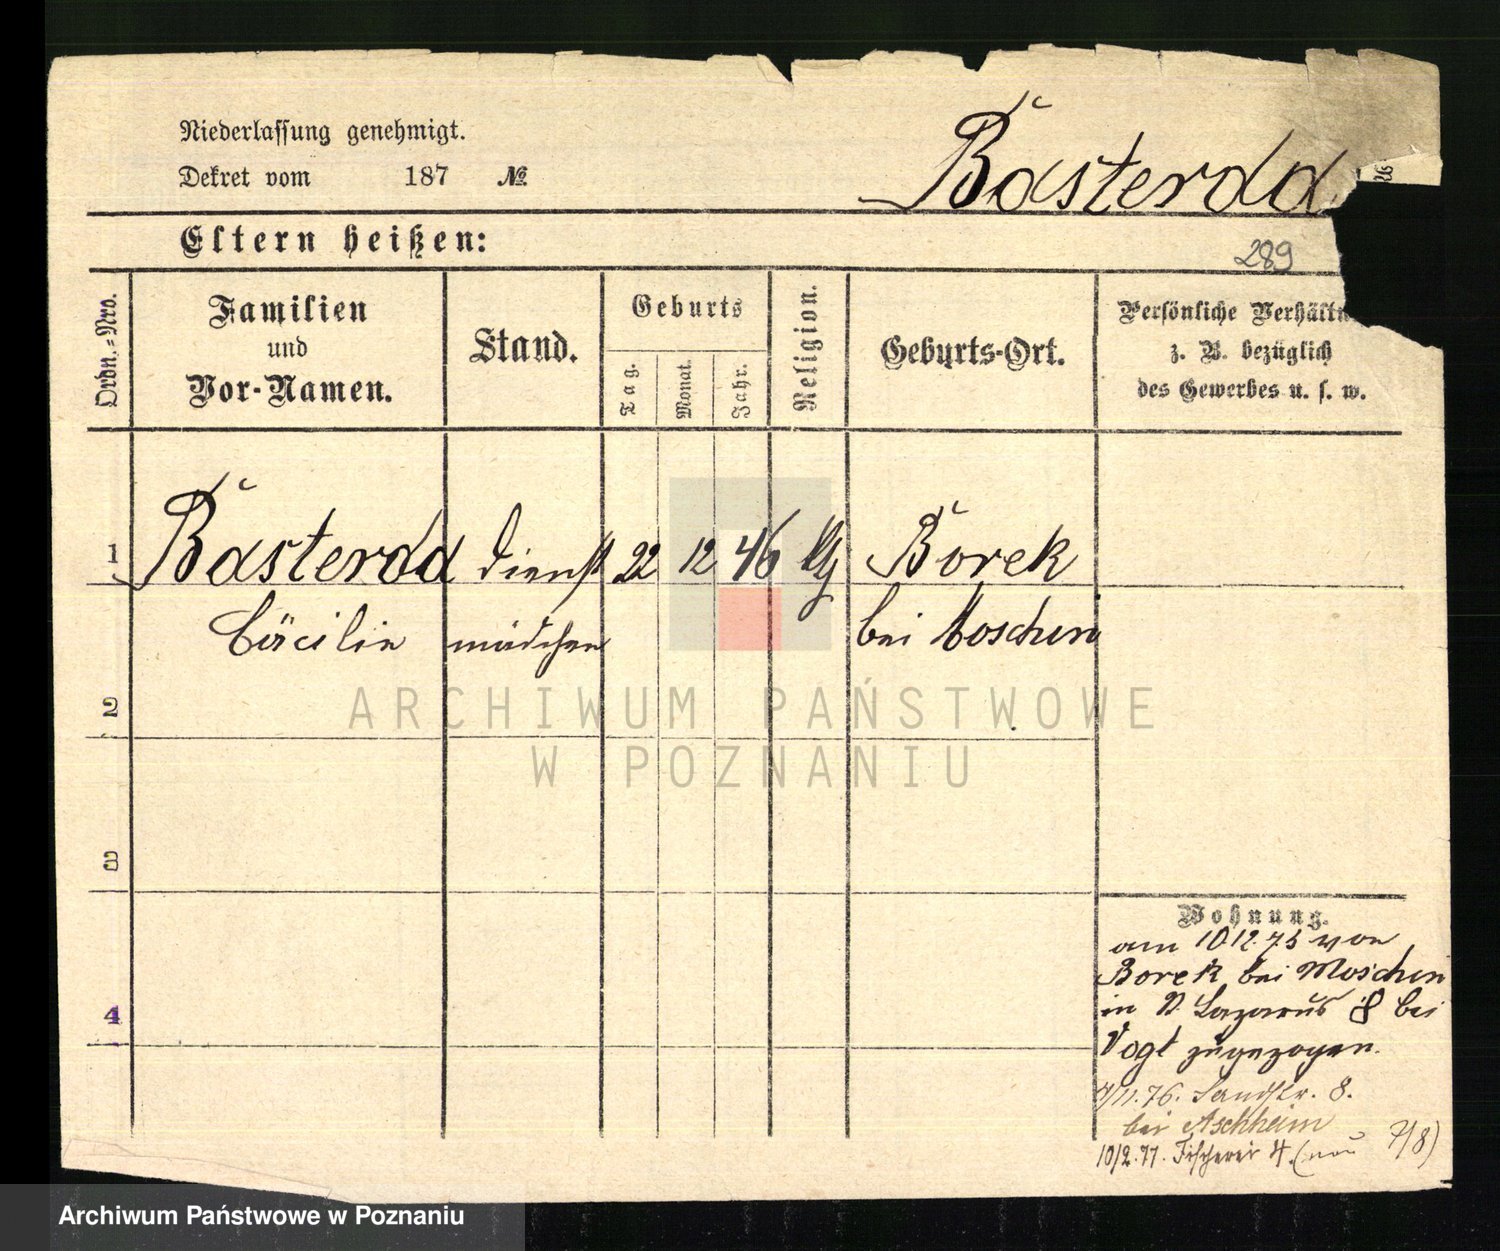 Niederlassung genehmigt.
Dekret vom 187 №
Basterdd
Eltern heißen:
289
Ordn.-Nro.
Familien
und
Vor-Namen.
Stand.
Geburts
Tag.
Monat.
Jahr.
Religion.
Geburts-Ort.
Persönliche Verhältn
z. B. bezüglich
des Gewerbes u. s. w.
1 Basterdd Dienst 22 12 46 Borek
Cäcilie mädchen bei Moschin
2
3
4
Wohnung.
am 10.12.75 von
Borek bei Moschin
in St. Lazarus 8 bei
Vogt zugezogen.
/11.76. Sandstr. 8.
bei Aschheim
10/2.77. Fischerei 4. (neu 7/8)
ARCHIWUM PAŃSTWOWE
W POZNANIU
Archiwum Państwowe w Poznaniu